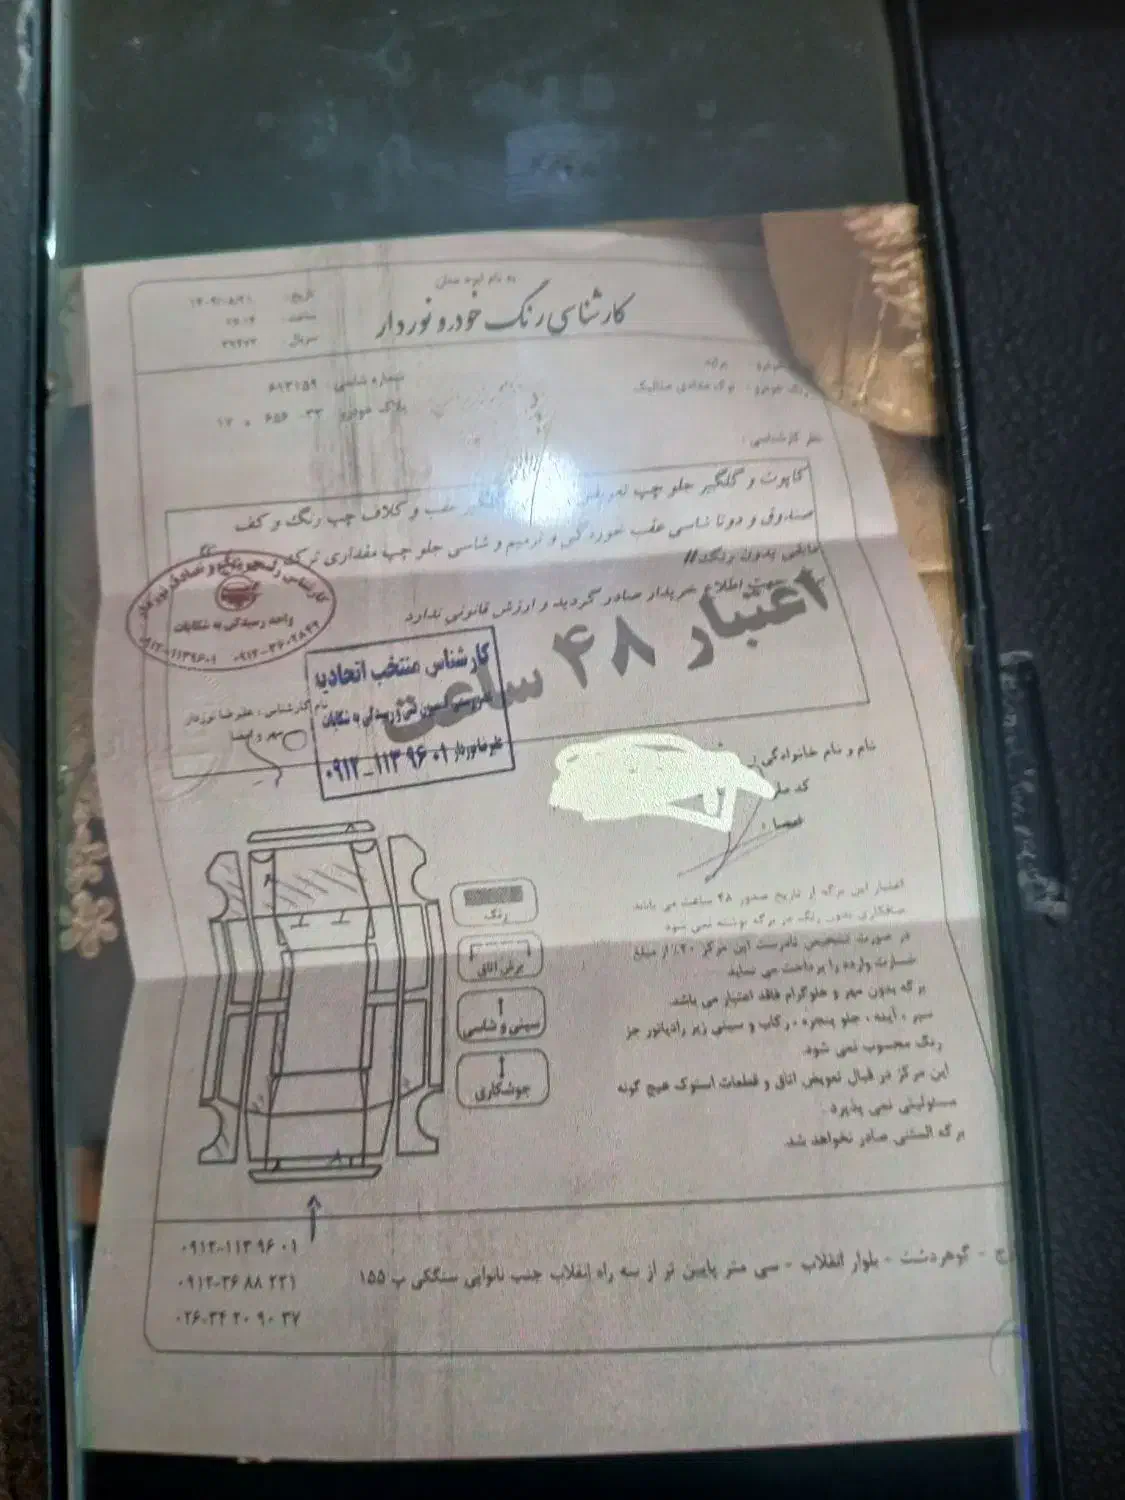 به نام ایزد منان
کارشناسی رنگ خودرو نوردار
تاریخ:
ساعت:
سریال
شماره شاسی: ۶۹۳۱۵۹
پلاک خودرو
رنگ خودرو: نوک مدادی متالیک
نظر کارشناسی:
کاپوت و گلگیر جلو چپ تعویض گلگیر عقب و کلاف چپ رنگ و کف
صندوق و دوتا شاسی عقب خوردگی و ترمیم و شاسی جلو چپ مقداری ترک
مابقی بدون رنگ//
جهت اطلاع خریدار صادر گردید و ارزش قانونی ندارد
اعتبار ۴۸ ساعت
واحد رسیدگی به شکایات
۰۹۱۲-۱۱۳۹۶۰۱
کارشناس منتخب اتحادیه
کمسیون فنی و رسیدگی به شکایات
علیرضا نوردار ۰۹۱۲-۱۱۳ ۹۶ ۰۱
نام کارشناس: علیرضا نوردار
مهر و امضا
نام و نام خانوادگی
کد ملی
امضا:
رنگ
برش اتاق
سینی و شاسی
جوشکاری
اعتبار این برگه از تاریخ صدور ۴۸ ساعت می باشد
صافکاری بدون رنگ در برگه نوشته نمی شود
در صورت تشخیص نادرست این مرکز ۲۰٪ از مبلغ
خسارت وارده را پرداخت می نماید
برگه بدون مهر و هلوگرام فاقد اعتبار می باشد.
سپر، آینه، جلو پنجره، رکاب و سینی زیر رادیاتور جز
رنگ محسوب نمی شود.
این مرکز در قبال تعویض اتاق و قطعات استوک هیچ گونه
مسئولیتی نمی پذیرد.
برگه المثنی صادر نخواهد شد
گوهردشت - بلوار انقلاب - سی متر پایین تر از سه راه انقلاب جنب نانوایی سنگکی پ ۱۵۵
۰۹۱۲-۱۱۳ ۹۶ ۰۱
۰۹۱۲-۳۶ ۸۸ ۲۲۱
۰۲۶-۳۴ ۲۰ ۹۰ ۳۷